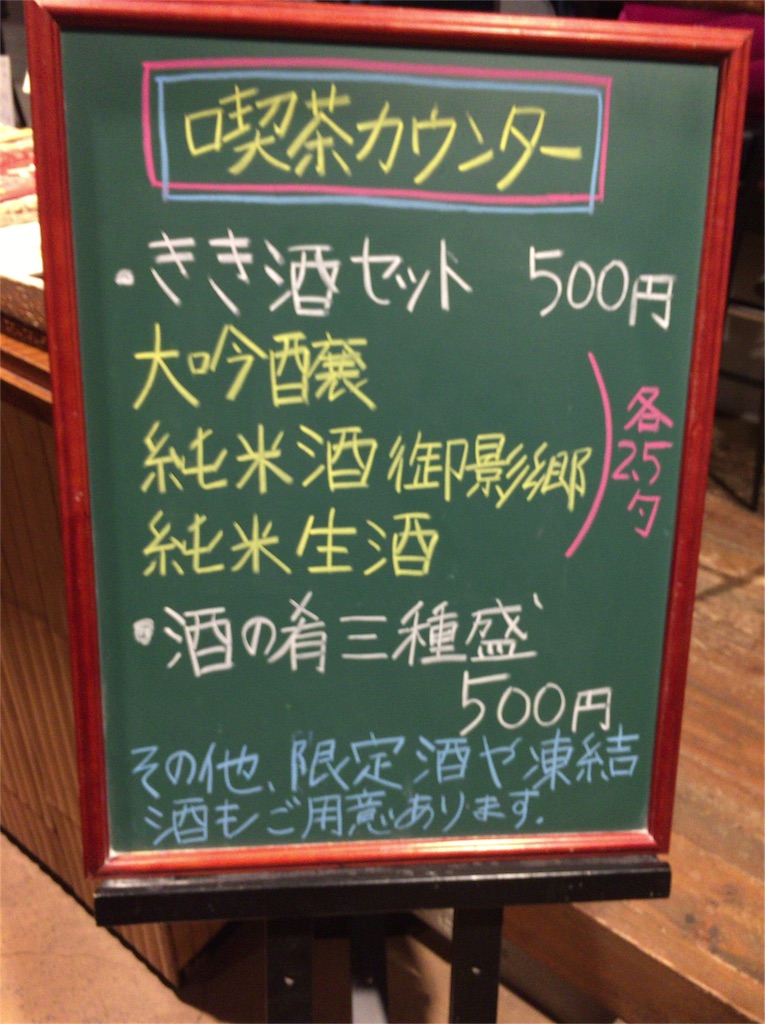 喫茶カウンター
・きき酒セット 500円
大吟醸
純米酒 御影郷
純米生酒
各25勺
・酒の肴三種盛
500円
その他、限定酒や凍結
酒もご用意あります.